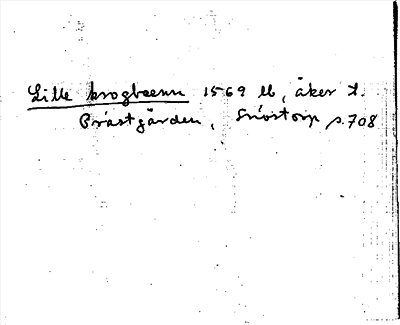 Lille krogbeenn 1569 lb, åker t.
Prästgården, Snöstorp s. 708